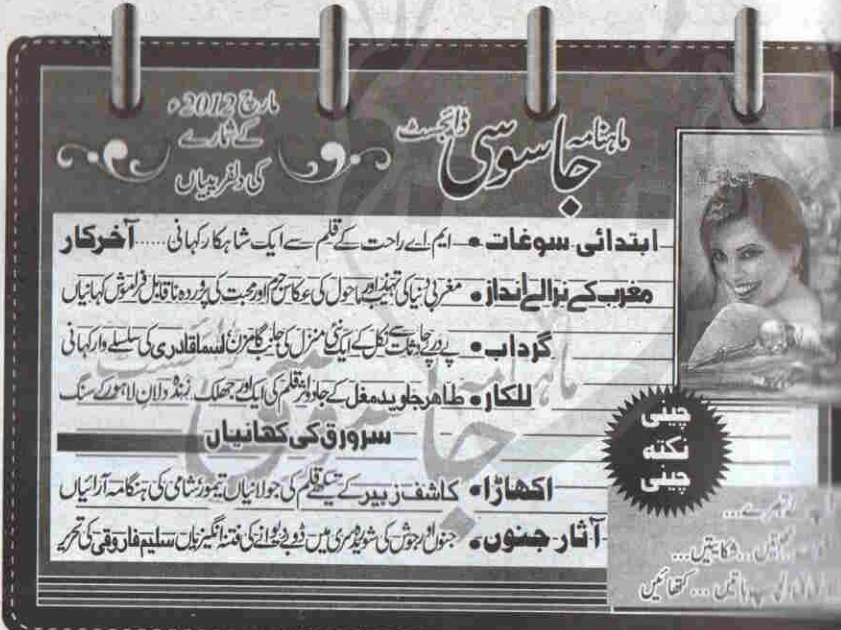 مارچ 2012ء
کے شمارے
کی دلفریبیاں
ماہنامہ جاسوسی ڈائجسٹ
ابتدائی سوغات • ایم اے راحت کے قلم سے ایک شاہکار کہانی ..... آخرکار
مغرب کے نرالے انداز • مغربی دنیا کی تہذیب اور ماحول کی عکاس جرم اور محبت کی پروردہ ناقابل فراموش کہانیاں
گرداب • پے درپے حادثات سے نکل کے ایک نئی منزل کی جانب گامزن اسما قادری کی سلسلے وار کہانی
للکار • طاهر جاوید مغل کے جادو اثر قلم کی ایک اور جھلک زندہ دلان لاہور کے سنگ
سرورق کی کہانیاں
اکھاڑا • کاشف زبیر کے تیکھے قلم کی جولانیاں تیمور شامی کی ہنگامہ آرائیاں
آثار جنوں • جنوں اور جوش کی شوریدہ سری میں ڈوبے دیوانے کی فتنہ انگیزیاں سلیم فاروقی کی تحریر
چینی
نکتہ
چینی
تبصرے ...
... شکایتیں ...
باتیں ... کتھائیں